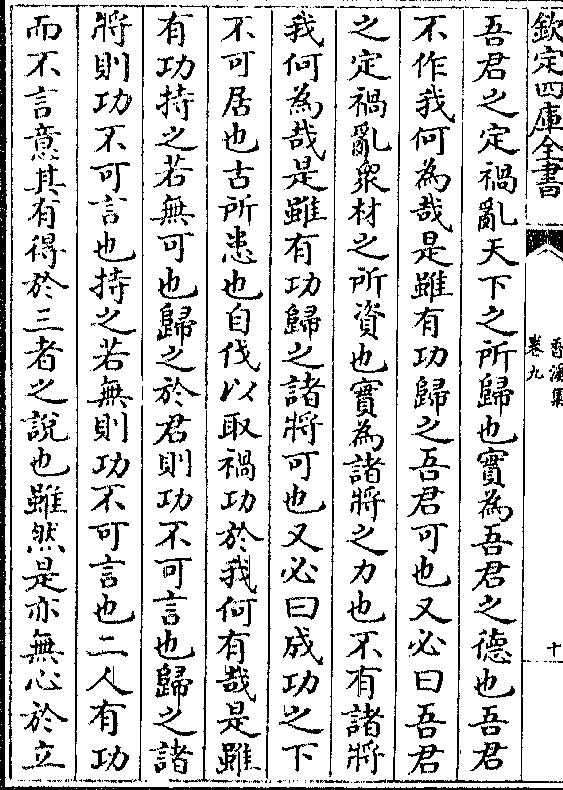 欽定四庫全書
香溪集
卷九
十
吾君之定禍亂天下之所歸也實為吾君之德也吾君
不作我何為哉是雖有功歸之吾君可也又必曰吾君
之定禍亂衆材之所資也實為諸將之力也不有諸將
我何為哉是雖有功歸之諸將可也又必曰成功之下
不可居也古所患也自伐以取禍功於我何有哉是雖
有功持之若無可也歸之於君則功不可言也歸之諸
將則功不可言也持之若無則功不可言也二人有功
而不言意其有得於三者之說也雖然是亦無心於立